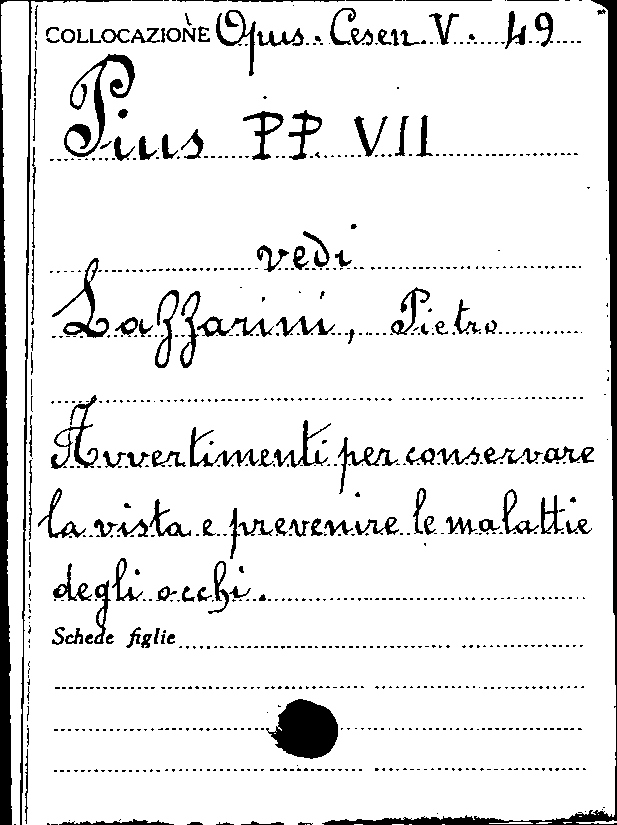 COLLOCAZIONE Opus. Cesen V. 49
Pius PP. VII
vedi
Lazzarini, Pietro
Avvertimenti per conservare
la vista e prevenire le malattie
degli occhi.
Schede figlie